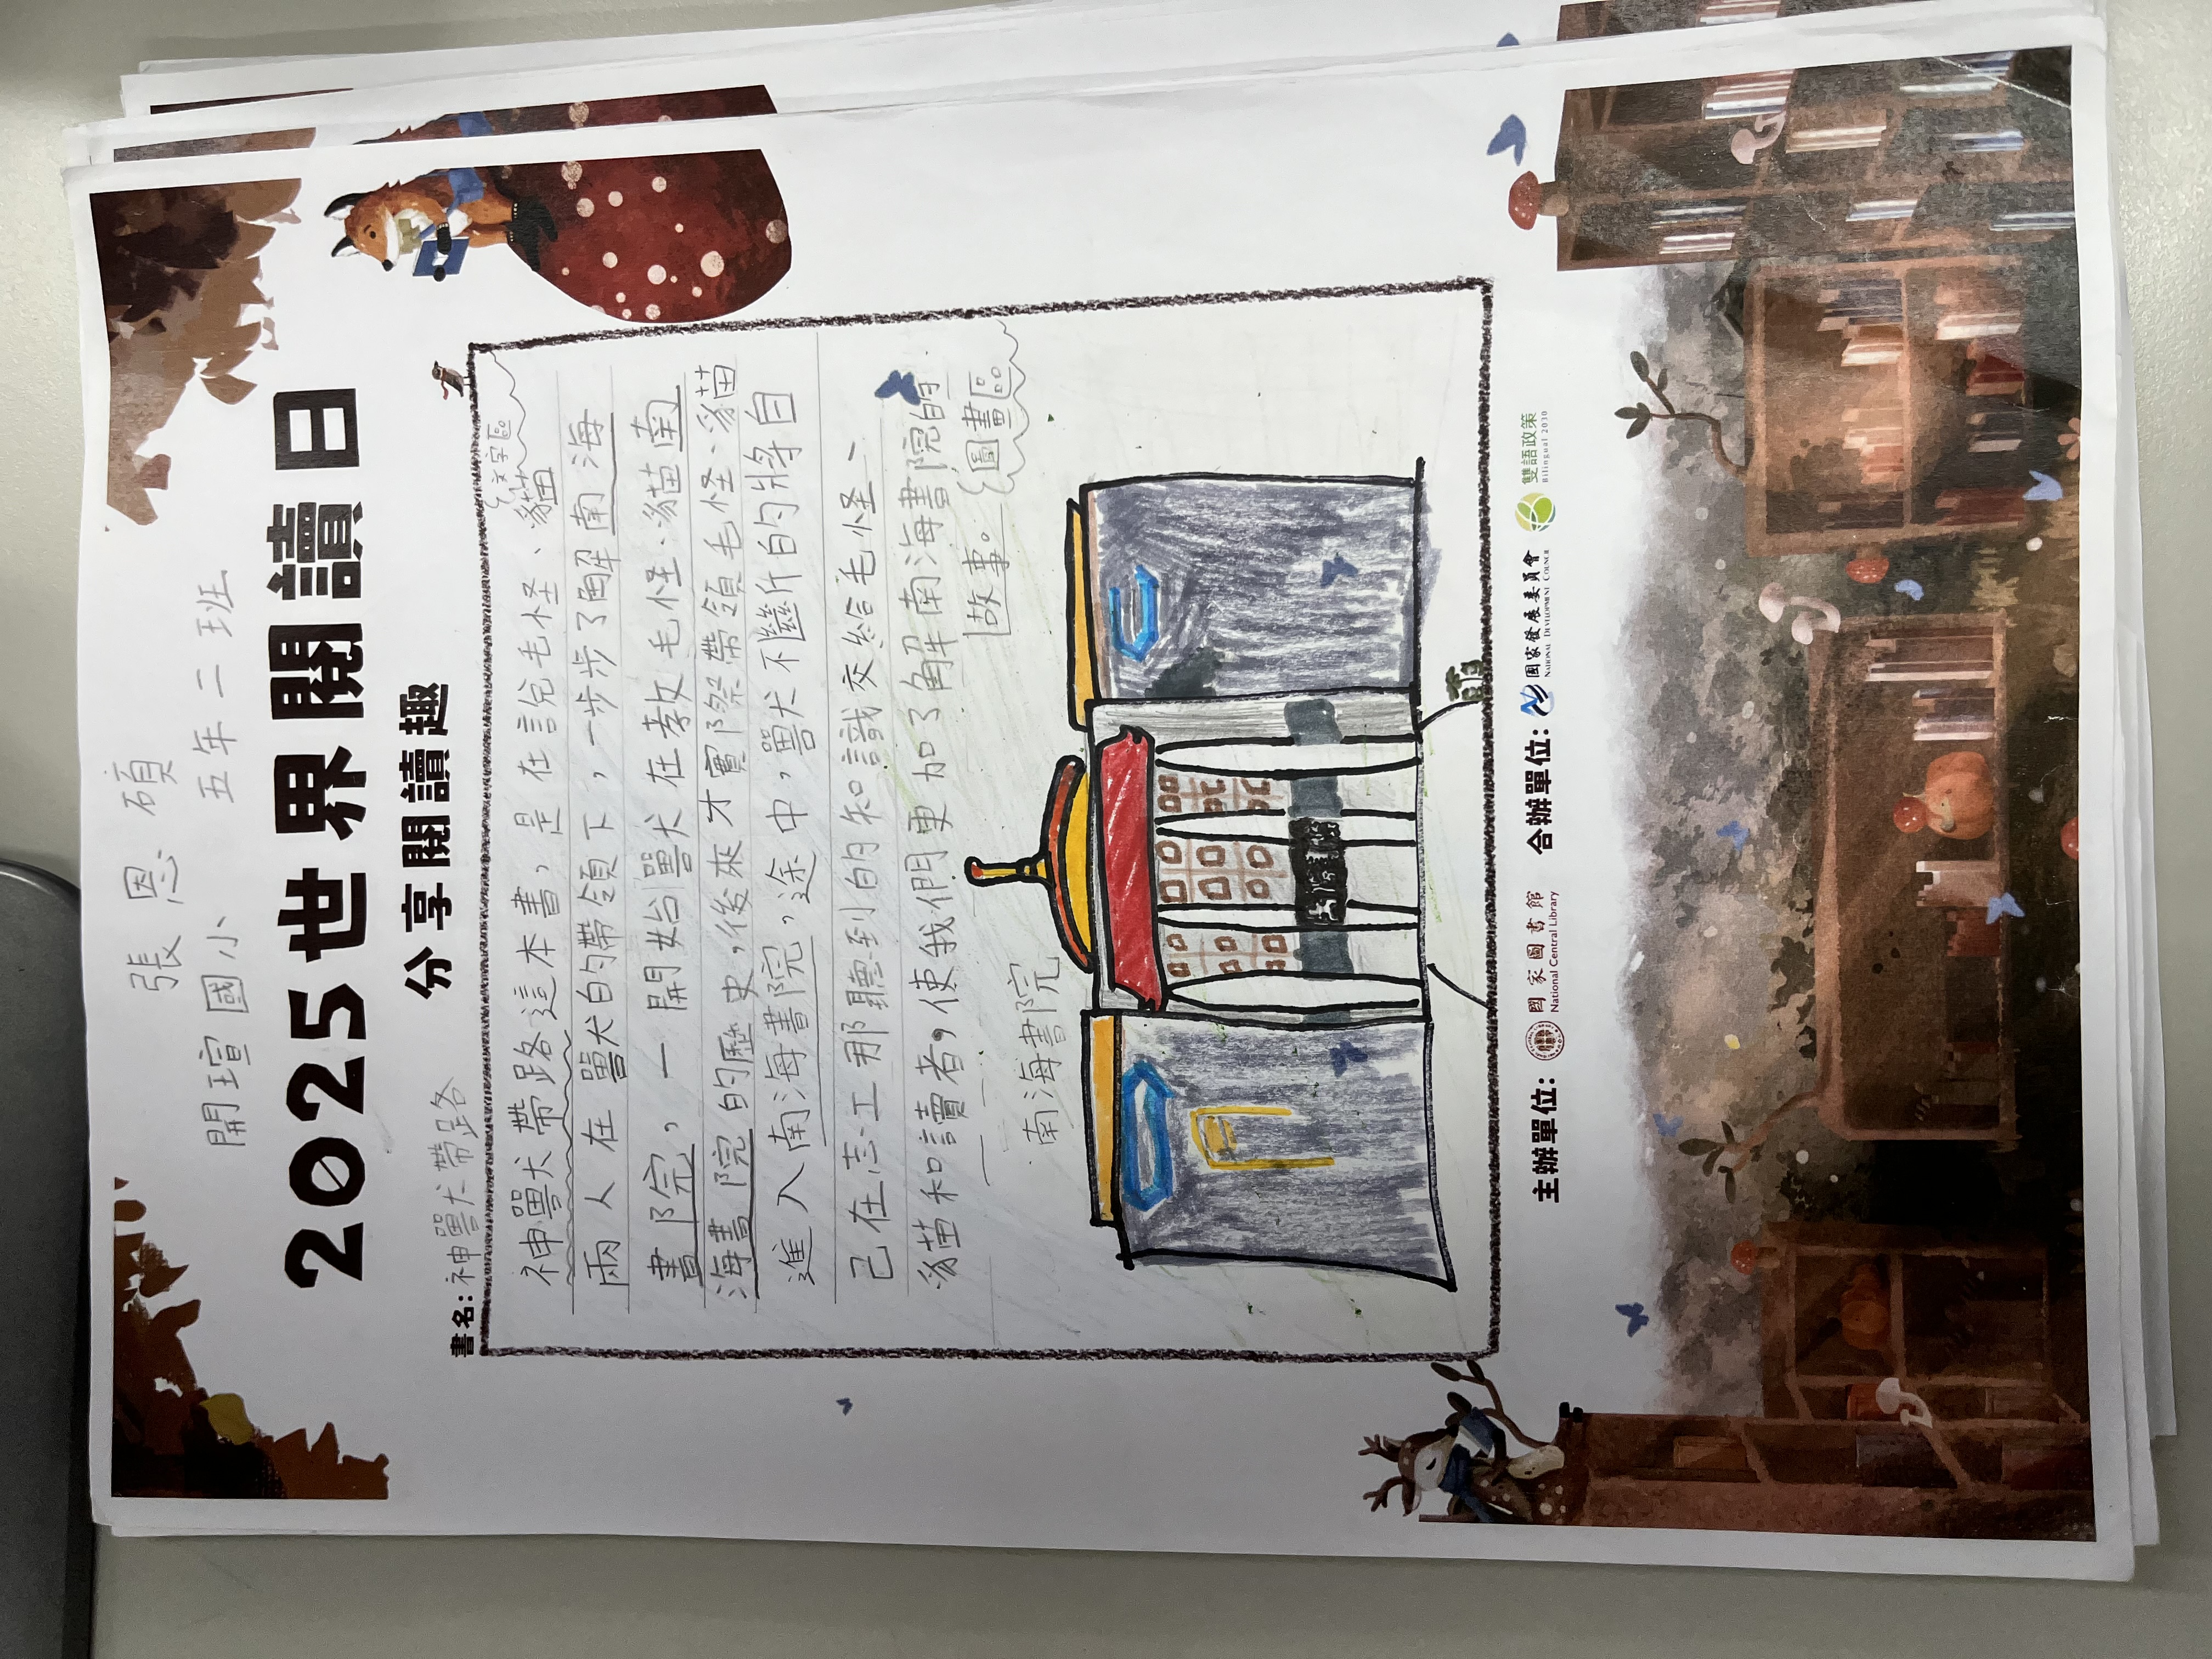 張恩碩
開瑄國小 五年二班
2025世界閱讀日
分享閱讀趣
書名：神獸犬帶路
文字區
神獸犬帶路這本書，是在說毛怪、貓貓
兩人在獸犬的帶領下，一步步了解南海
書院，一開始獸犬在教毛怪、貓苗南
海書院的歷史，後來才實際帶領毛怪、貓苗
進入南海書院，途中，獸犬不斷的將自
己在志工那聽到的知識交給毛怪、
貓苗和讀者，使我們更加了解南海書院的
故事。
圖畫區
南海書院
主辦單位：國家圖書館 National Central Library 合辦單位：國家發展委員會 NATIONAL DEVELOPMENT COUNCIL 雙語政策 Bilingual 2030